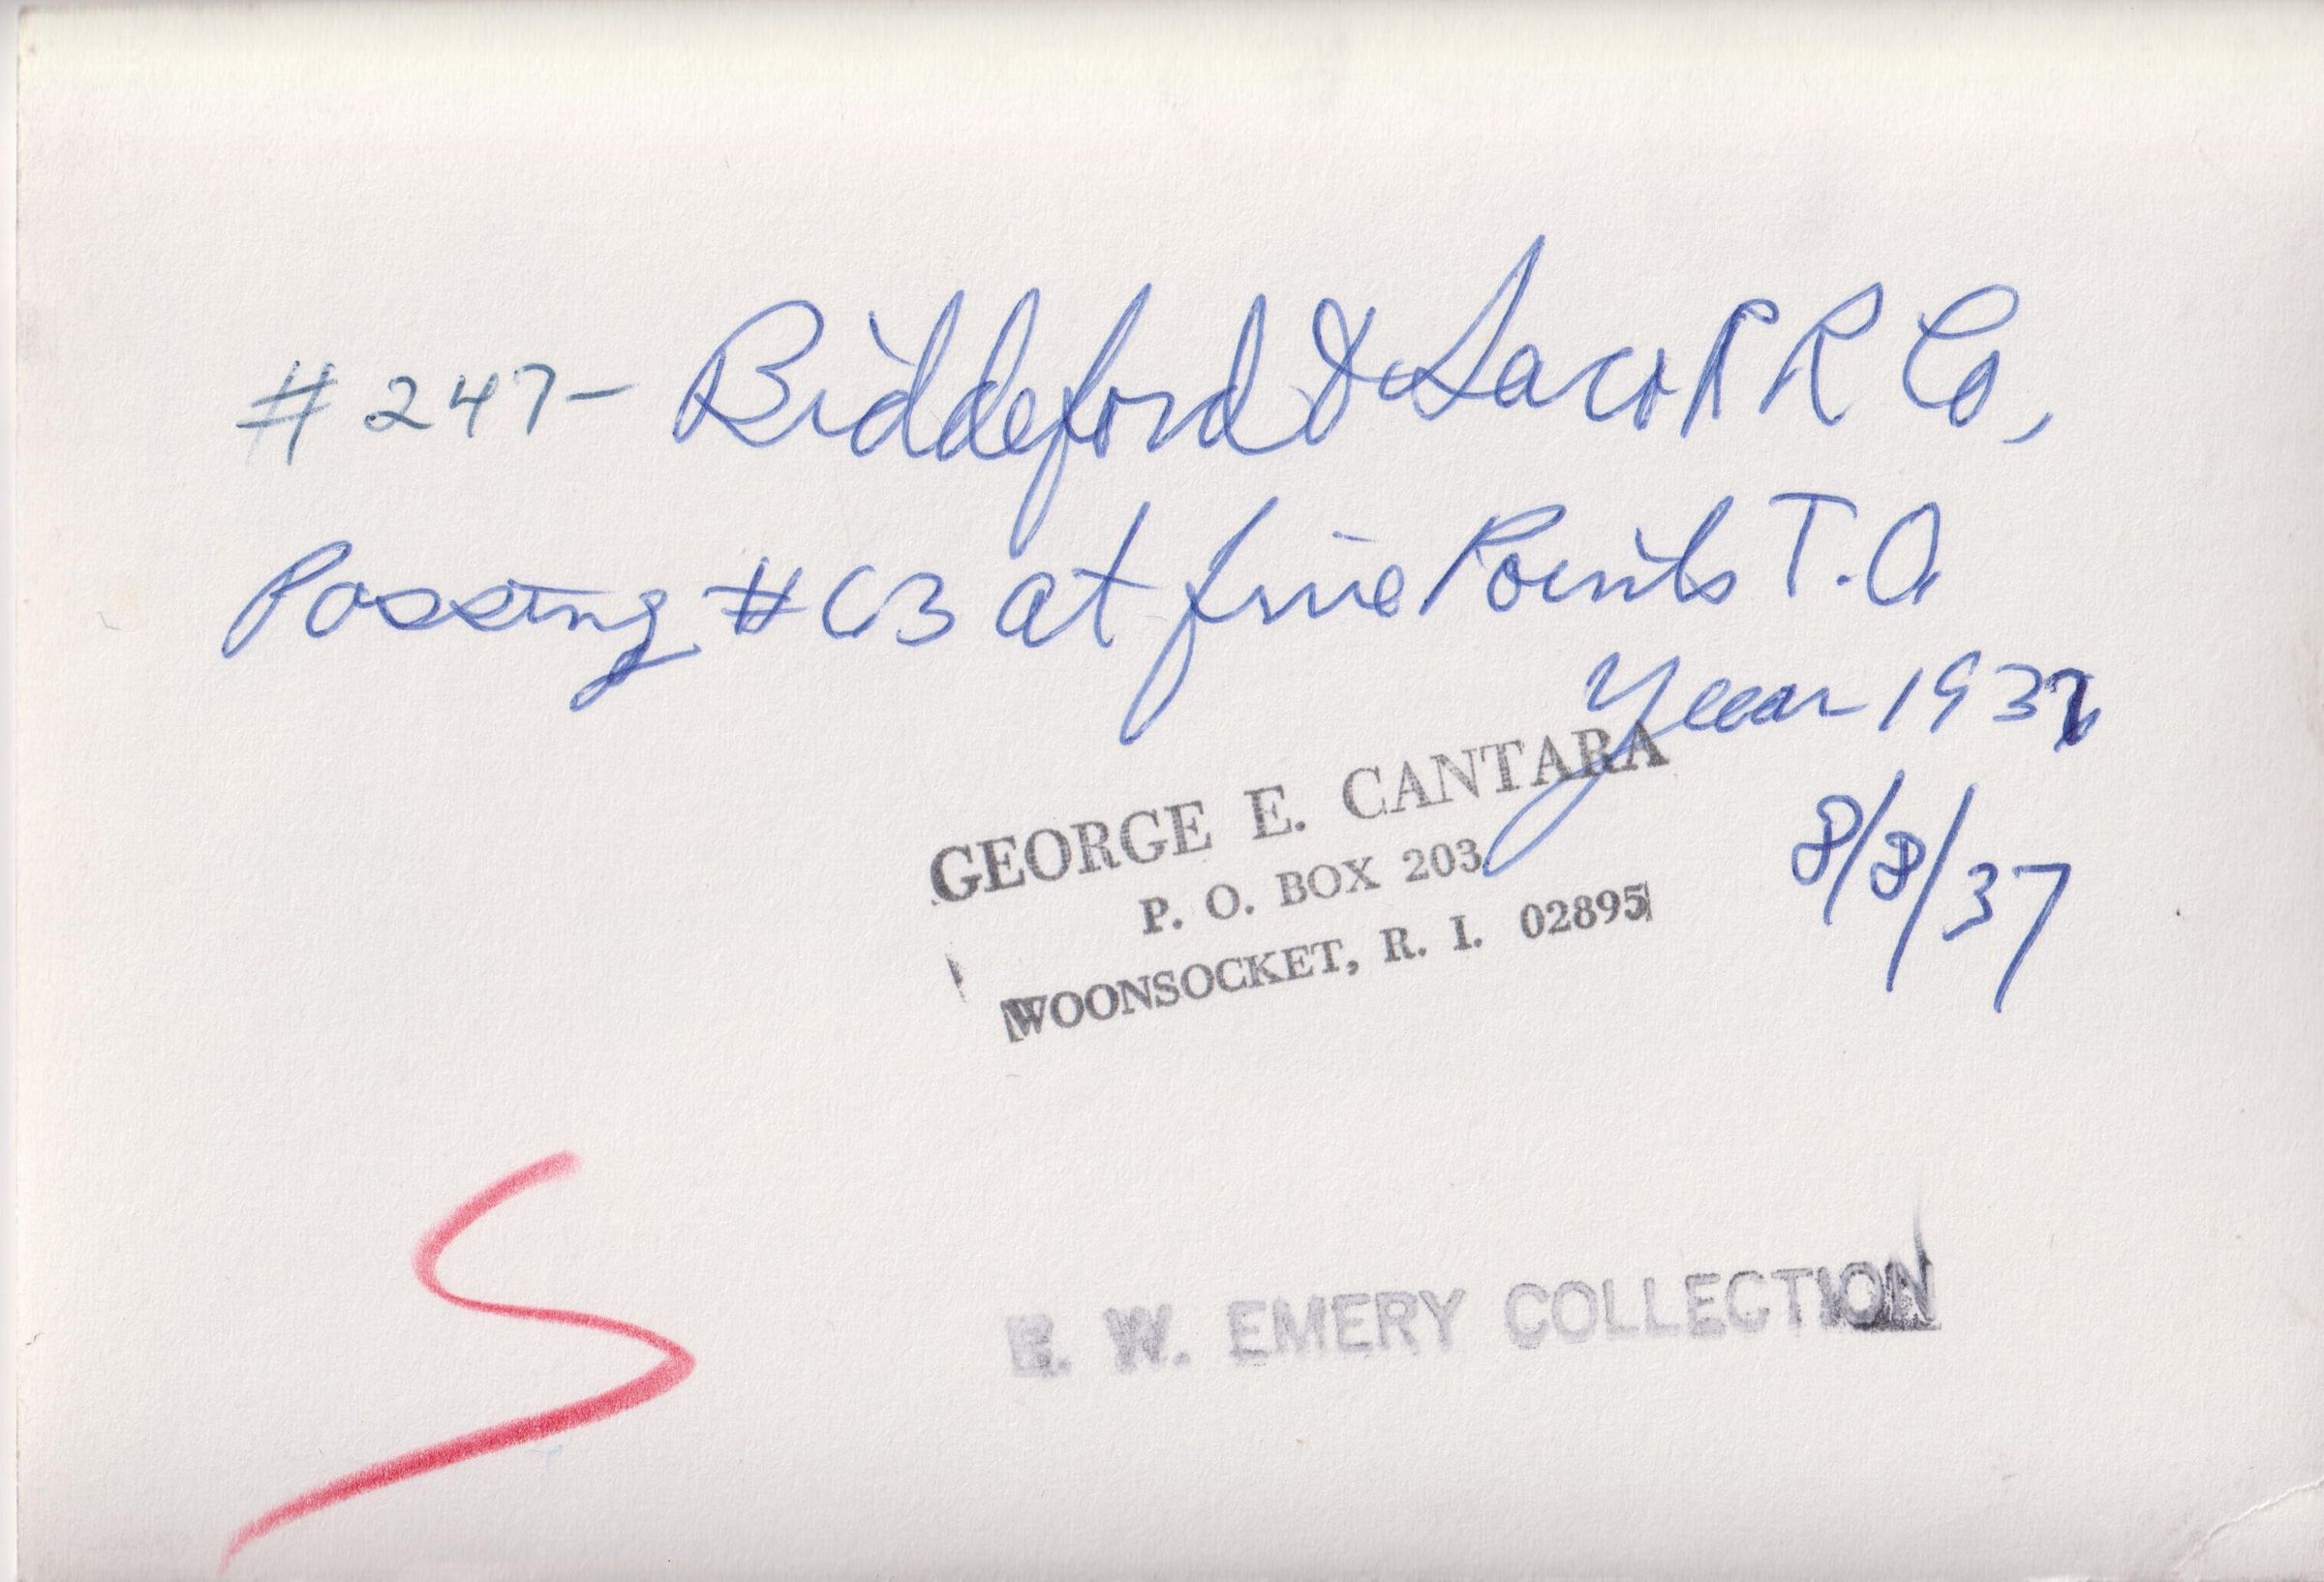 #247- Biddeford & Saco R R Co,
Passing #63 at five Points T.O.
Year 1937
8/8/37
GEORGE E. CANTARA
P. O. BOX 203
WOONSOCKET, R. I. 02895
S
E. W. EMERY COLLECTION